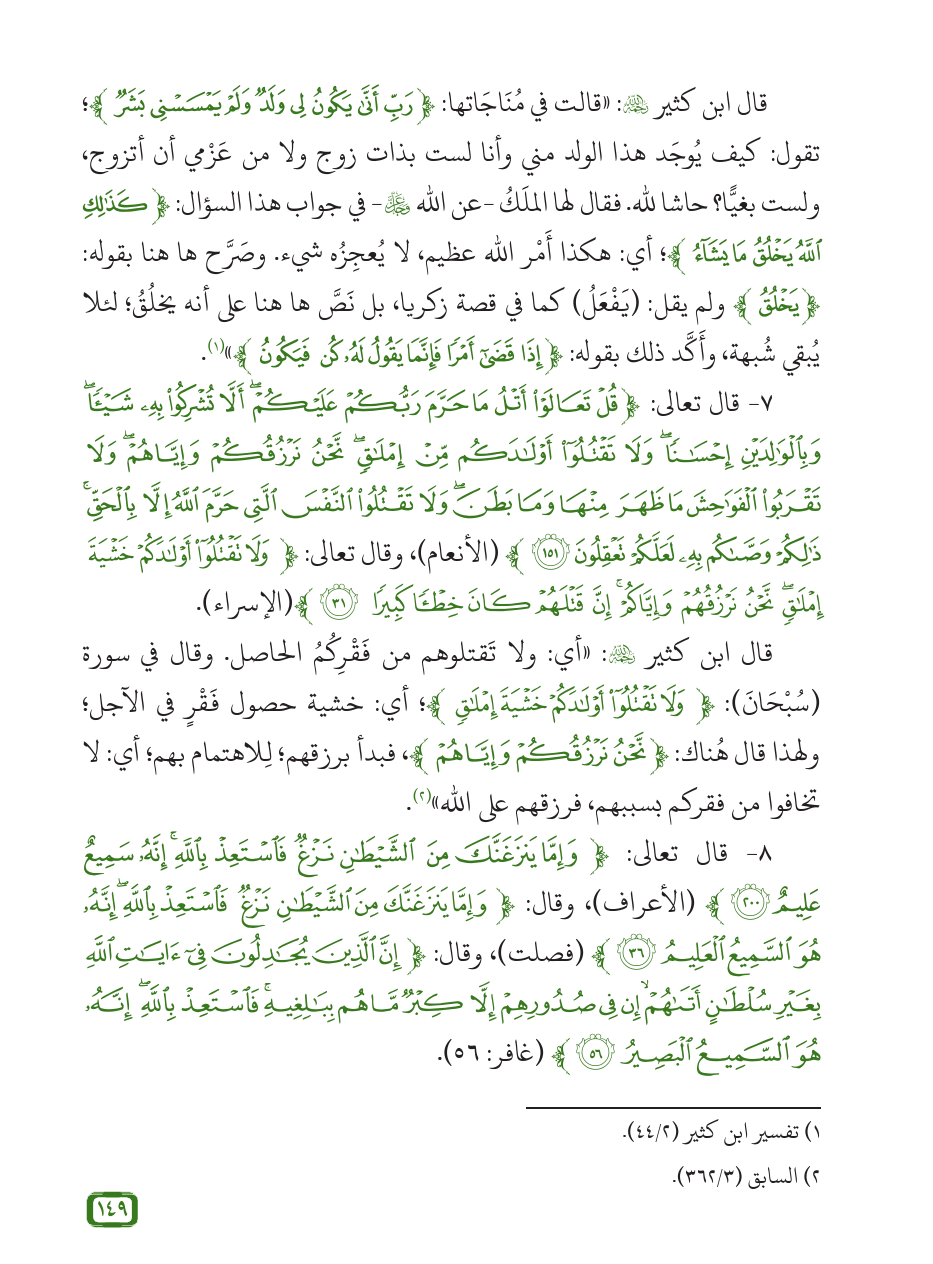 قال ابن كثير ﵀: «قالت في مُنَاجَاتها: ﴿ رَبِّ أَنَّىٰ يَكُونُ لِى وَلَدٌ وَلَمْ يَمْسَسْنِى بَشَرٌ ﴾؛
تقول: كيف يُوجَد هذا الولد مني وأنا لست بذات زوج ولا من عَزْمي أن أتزوج،
ولست بغيًّا؟ حاشا لله. فقال لها الملَكُ -عن الله ﷿- في جواب هذا السؤال: ﴿ كَذَٰلِكِ
ٱللَّهُ يَخْلُقُ مَا يَشَآءُ ﴾؛ أي: هكذا أَمْر الله عظيم، لا يُعجِزُه شيء. وصَرَّح ها هنا بقوله:
﴿ يَخْلُقُ ﴾ ولم يقل: (يَفْعَلُ) كما في قصة زكريا، بل نَصَّ ها هنا على أنه يخلُقُ؛ لئلا
يُبقي شُبهة، وأَكَّد ذلك بقوله: ﴿ إِذَا قَضَىٰٓ أَمْرًا فَإِنَّمَا يَقُولُ لَهُۥ كُن فَيَكُونُ ﴾»(١).
٧- قال تعالى: ﴿ قُلْ تَعَالَوْا۟ أَتْلُ مَا حَرَّمَ رَبُّكُمْ عَلَيْكُمْ ۖ أَلَّا تُشْرِكُوا۟ بِهِۦ شَيْـًٔا ۖ
وَبِٱلْوَٰلِدَيْنِ إِحْسَـٰنًا ۖ وَلَا تَقْتُلُوٓا۟ أَوْلَـٰدَكُم مِّنْ إِمْلَـٰقٍ ۖ نَّحْنُ نَرْزُقُكُمْ وَإِيَّاهُمْ ۖ وَلَا
تَقْرَبُوا۟ ٱلْفَوَٰحِشَ مَا ظَهَرَ مِنْهَا وَمَا بَطَنَ ۖ وَلَا تَقْتُلُوا۟ ٱلنَّفْسَ ٱلَّتِى حَرَّمَ ٱللَّهُ إِلَّا بِٱلْحَقِّ ۚ
ذَٰلِكُمْ وَصَّىٰكُم بِهِۦ لَعَلَّكُمْ تَعْقِلُونَ ١٥١ ﴾ (الأنعام)، وقال تعالى: ﴿ وَلَا تَقْتُلُوٓا۟ أَوْلَـٰدَكُمْ خَشْيَةَ
إِمْلَـٰقٍ ۖ نَّحْنُ نَرْزُقُهُمْ وَإِيَّاكُمْ ۚ إِنَّ قَتْلَهُمْ كَانَ خِطْـًٔا كَبِيرًا ٣١ ﴾ (الإسراء).
قال ابن كثير ﵀: «أي: ولا تَقتلوهم من فَقْرِكُمُ الحاصل. وقال في سورة
(سُبْحَانَ): ﴿ وَلَا تَقْتُلُوٓا۟ أَوْلَـٰدَكُمْ خَشْيَةَ إِمْلَـٰقٍ ﴾؛ أي: خشية حصول فَقْرٍ في الآجل؛
ولهذا قال هُناك: ﴿ نَّحْنُ نَرْزُقُكُمْ وَإِيَّاهُمْ ﴾، فبدأ برزقهم؛ لِلاهتمام بهم؛ أي: لا
تخافوا من فقركم بسببهم، فرزقهم على الله»(٢).
٨- قال تعالى: ﴿ وَإِمَّا يَنزَغَنَّكَ مِنَ ٱلشَّيْطَـٰنِ نَزْغٌ فَٱسْتَعِذْ بِٱللَّهِ ۚ إِنَّهُۥ سَمِيعٌ
عَلِيمٌ ٢٠٠ ﴾ (الأعراف)، وقال: ﴿ وَإِمَّا يَنزَغَنَّكَ مِنَ ٱلشَّيْطَـٰنِ نَزْغٌ فَٱسْتَعِذْ بِٱللَّهِ ۖ إِنَّهُۥ
هُوَ ٱلسَّمِيعُ ٱلْعَلِيمُ ٣٦ ﴾ (فصلت)، وقال: ﴿ إِنَّ ٱلَّذِينَ يُجَـٰدِلُونَ فِىٓ ءَايَـٰتِ ٱللَّهِ
بِغَيْرِ سُلْطَـٰنٍ أَتَىٰهُمْ ۙ إِن فِى صُدُورِهِمْ إِلَّا كِبْرٌ مَّا هُم بِبَـٰلِغِيهِ ۚ فَٱسْتَعِذْ بِٱللَّهِ ۖ إِنَّهُۥ
هُوَ ٱلسَّمِيعُ ٱلْبَصِيرُ ٥٦ ﴾ (غافر: ٥٦).
١) تفسير ابن كثير (٢/ ٤٤).
٢) السابق (٣/ ٣٦٢).
١٤٩